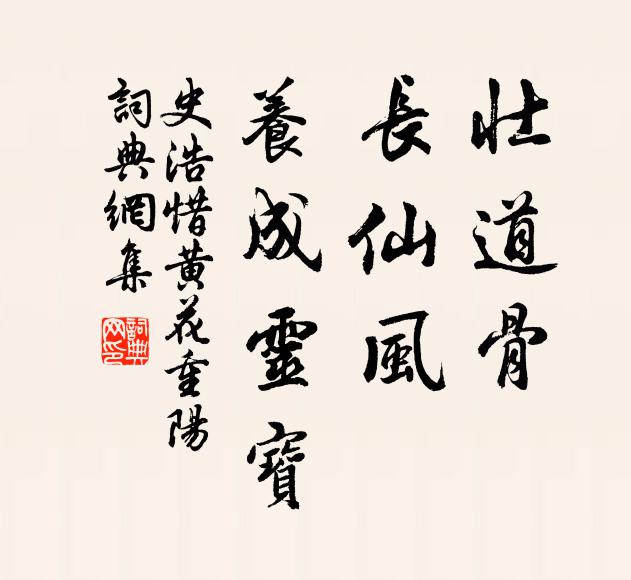 壯道骨
長仙風
養成靈寶
史浩惜黃花重陽
詞典網集
詞典
网印